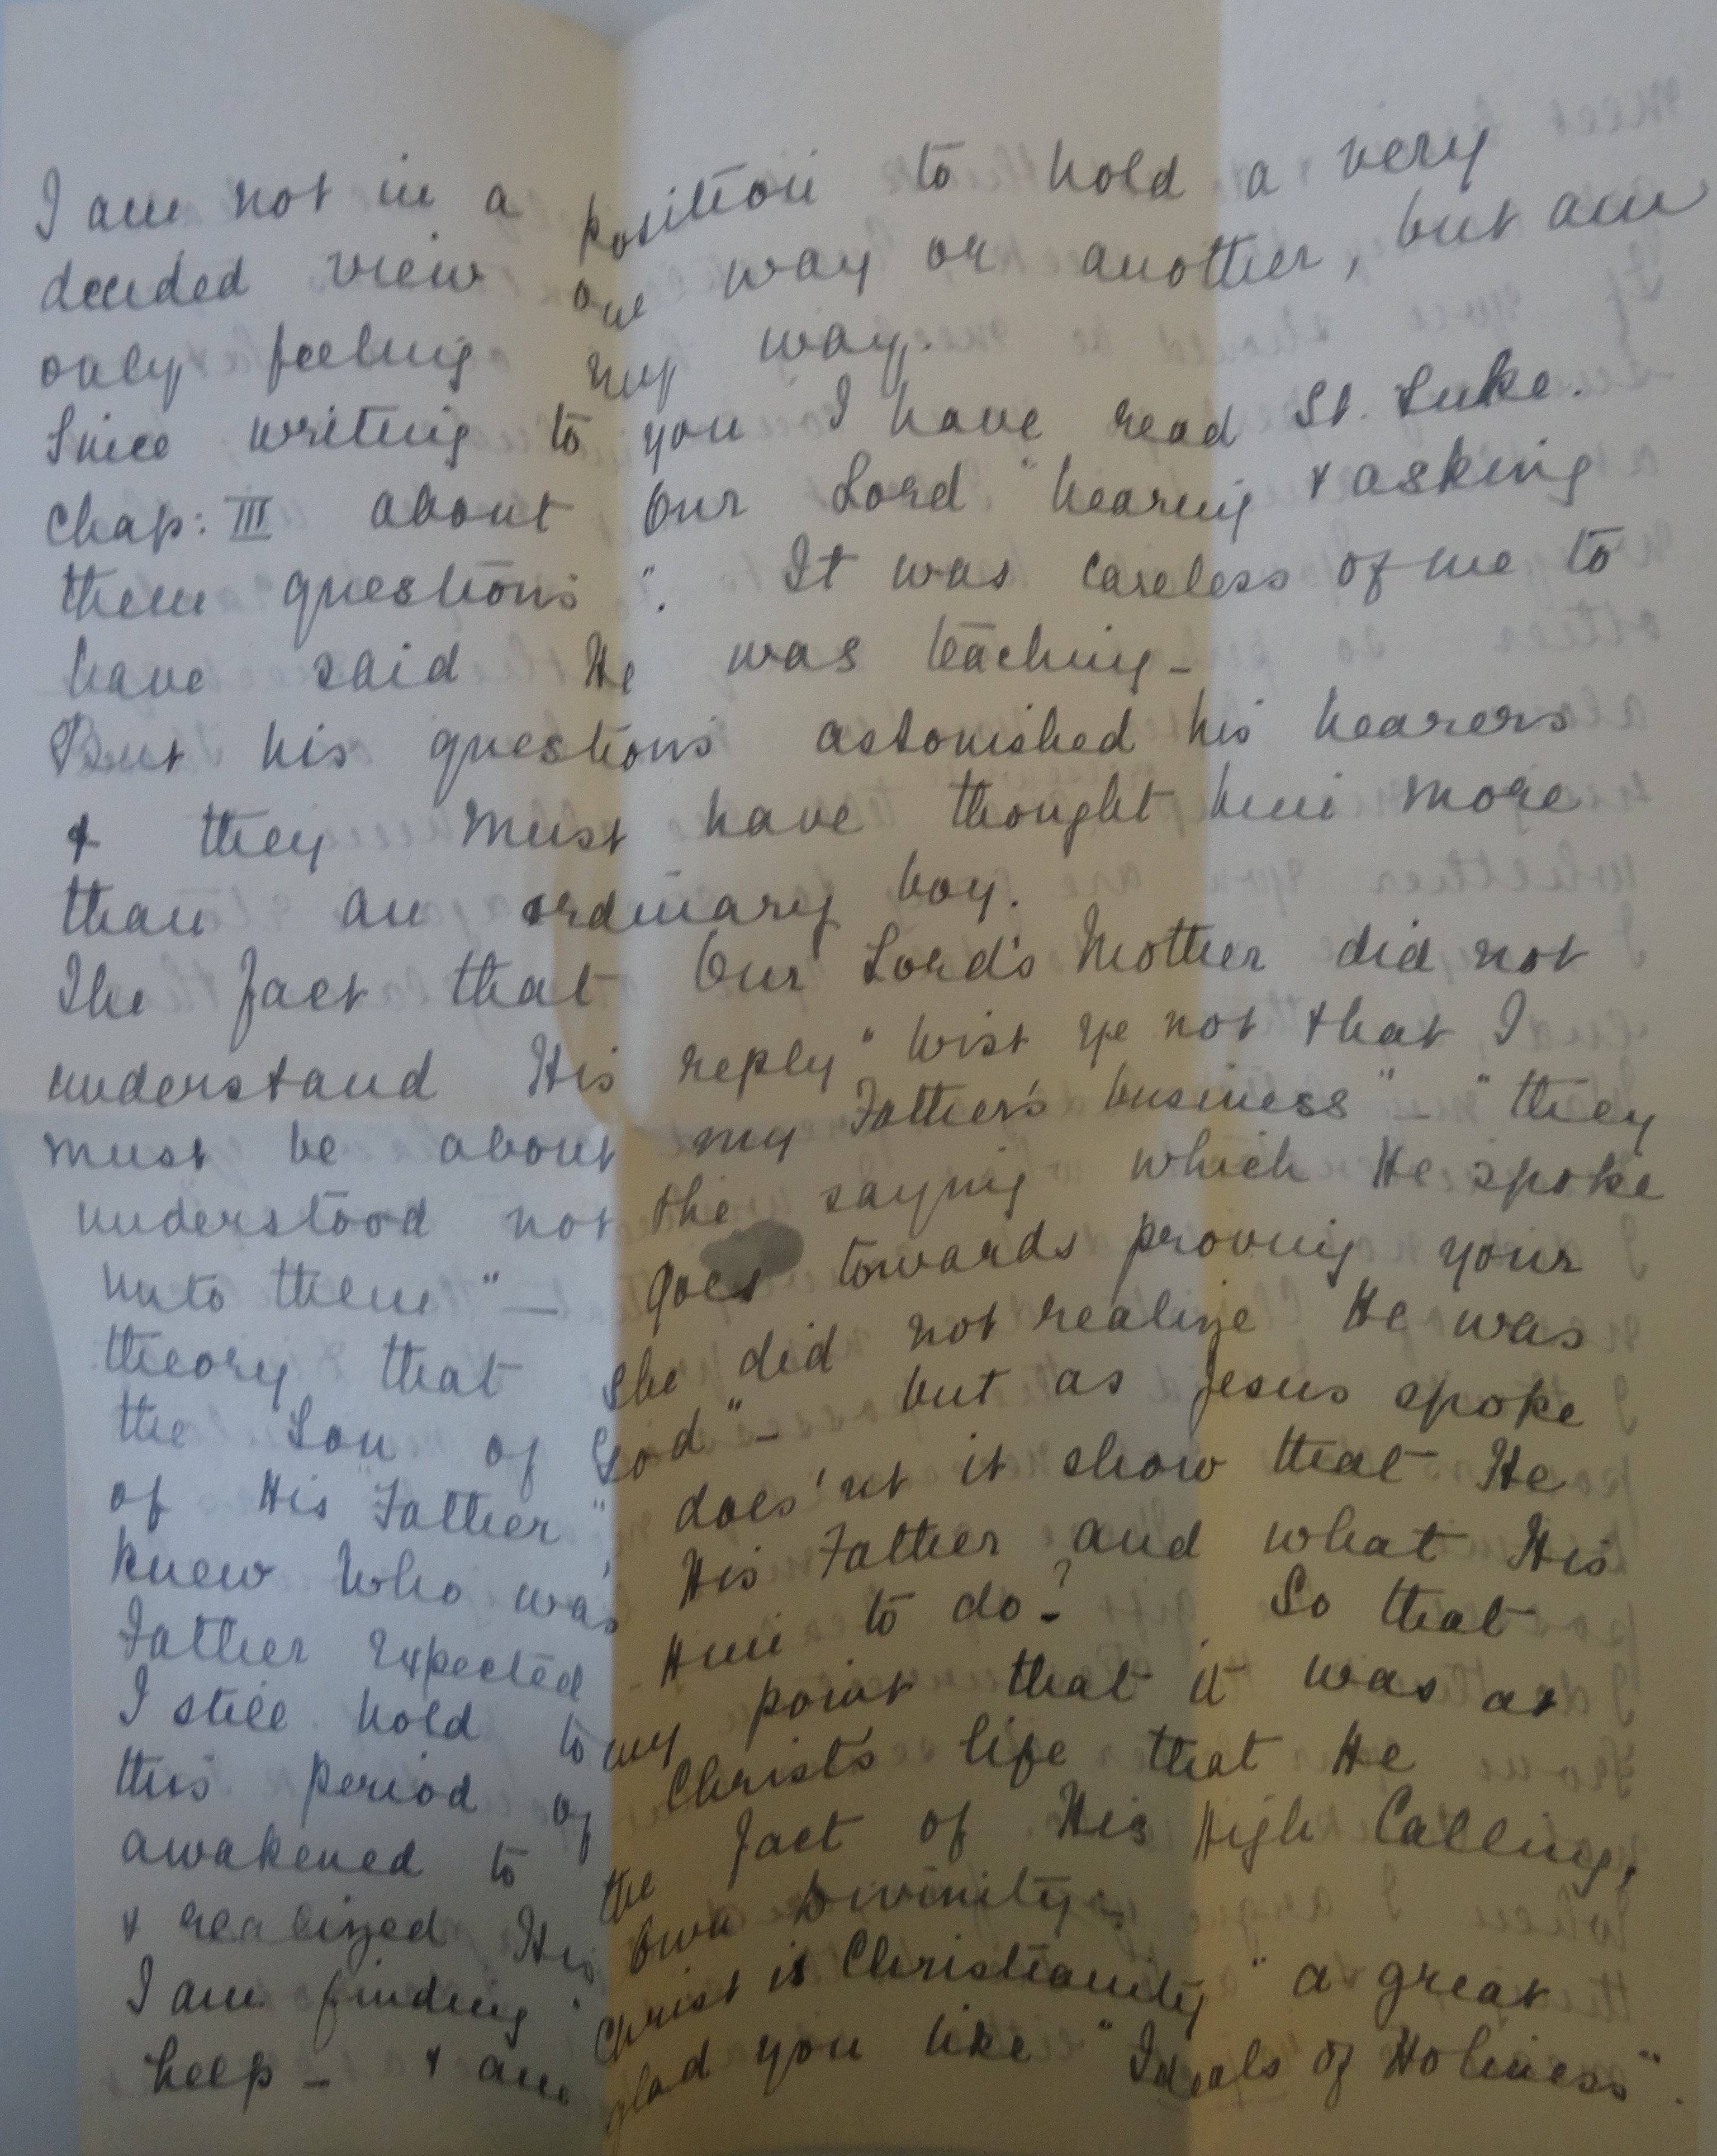 I am not in a position to hold a very
decided view one way or another, but am
only feeling my way.
Since writing to you I have read St. Luke.
Chap: III about Our Lord "hearing & asking
them questions". It was careless of me to
have said He was teaching -
But his questions astonished his hearers
& they must have thought him more
than an ordinary boy.
The fact that Our Lord's Mother did not
understand His reply "Wist ye not that I
must be about my Father's business" - "they
understood not the saying which He spoke
unto them" — goes towards proving your
theory that she did not realize He was
the Son of God" - but as Jesus spoke
of His "Father" does'nt it show that He
knew Who was His Father and what His
Father expected Him to do? - So that
I still hold to my point that it was at
this period of Christ's life that He
awakened to the fact of His High Calling,
& realized His Own Divinity -
I am finding "Christ is Christianity" a great
help - & am glad you like "Ideals of Holiness".